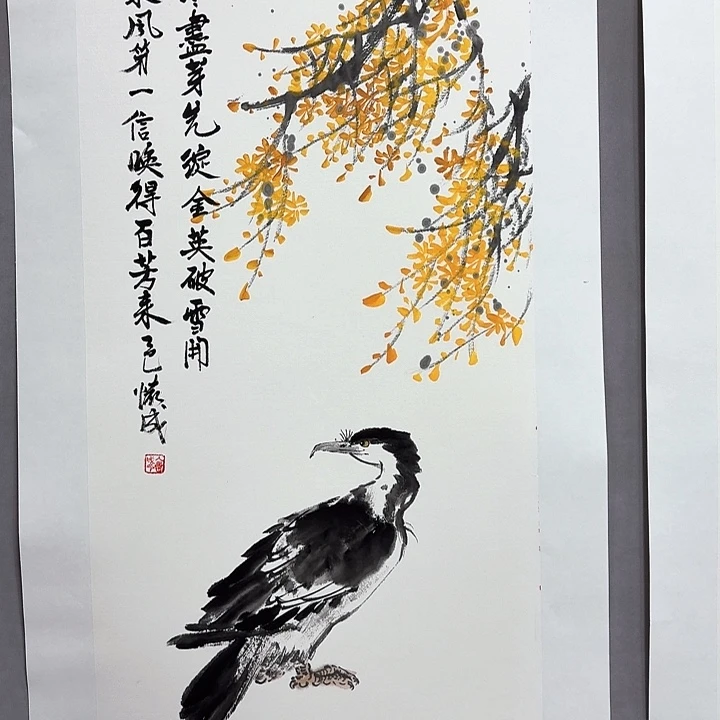 盡芽先綻金英破雪開
風第一信喚得百芳來